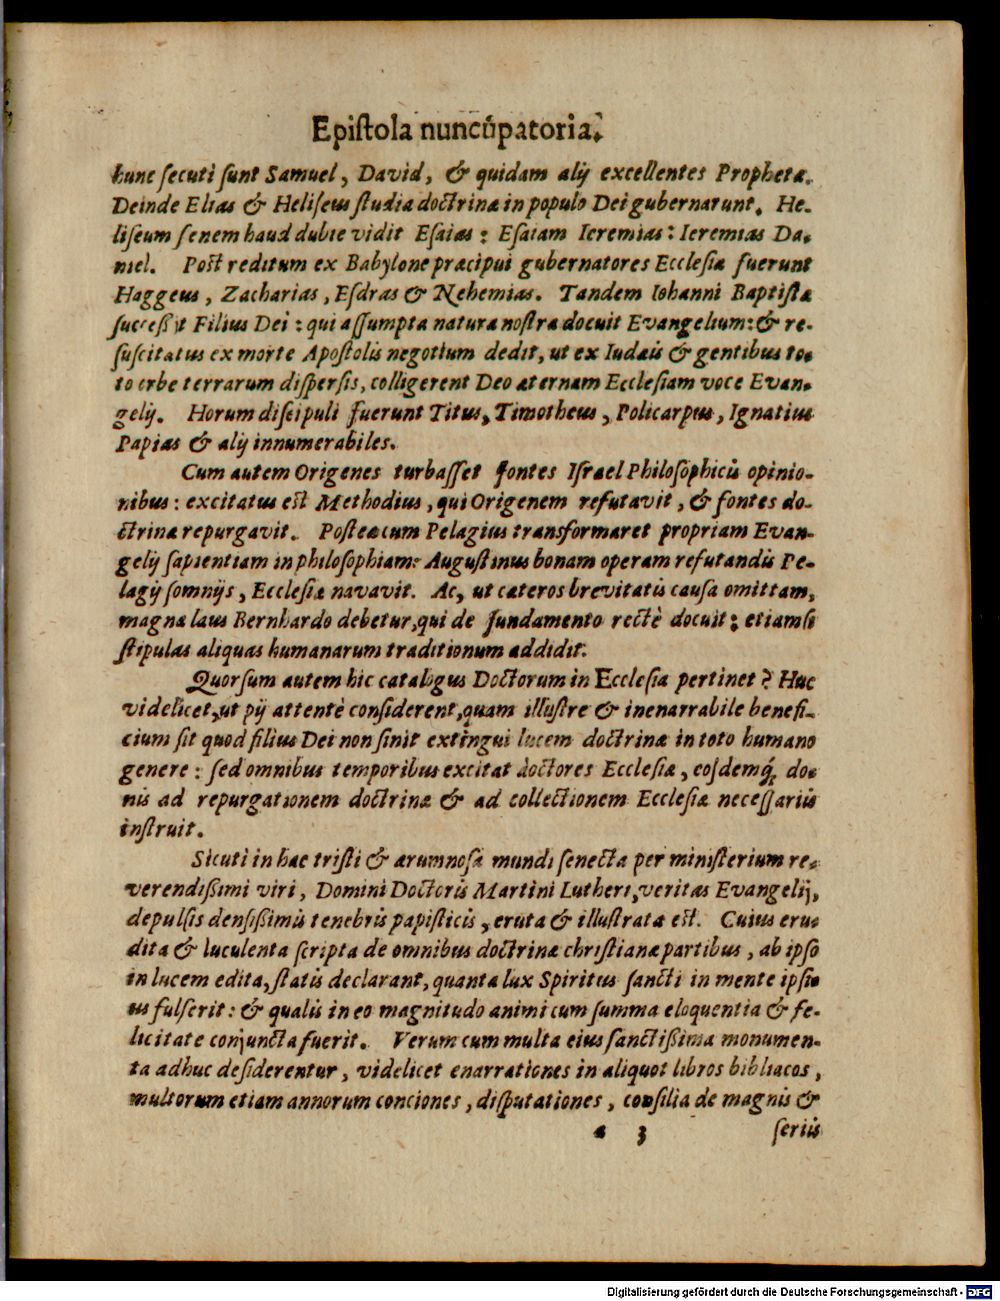 Epistola nuncupatoria.
hunc secuti sunt Samuel, David, & quidam alij excellentes Prophetæ.
Deinde Elias & Heliseus studia doctrinæ in populo Dei gubernarunt. He-
liseum senem haud dubie vidit Esaias: Esaiam Ieremias: Ieremias Da-
niel. Post reditum ex Babylone præcipui gubernatores Ecclesiæ fuerunt
Haggeus, Zacharias, Esdras & Nehemias. Tandem Iohanni Baptistæ
successit Filius Dei: qui assumpta natura nostra docuit Evangelium: & re-
suscitatus ex morte Apostolis negotium dedit, ut ex Iudæis & gentibus to-
to orbe terrarum dispersis, colligerent Deo æternam Ecclesiam voce Evan-
gelij. Horum discipuli fuerunt Titus, Timotheus, Policarpus, Ignatius
Papias & alij innumerabiles.
Cum autem Origenes turbasset fontes Israel Philosophicis opinio-
nibus: excitatus est Methodius, qui Origenem refutavit, & fontes do-
ctrinæ repurgavit. Postea cum Pelagius transformaret propriam Evan-
gelij sapientiam in philosophiam: Augustinus bonam operam refutandis Pe-
lagij somnijs, Ecclesiæ navavit. Ac, ut cæteros brevitatis causa omittam,
magna laus Bernhardo debetur, qui de fundamento rectè docuit: etiamsi
stipulas aliquas humanarum traditionum addidit.
Quorsum autem hic catalogus Doctorum in Ecclesia pertinet? Huc
videlicet, ut pij attentè considerent, quam illustre & inenarrabile benefi-
cium sit quod filius Dei non sinit extingui lucem doctrinæ in toto humano
genere: sed omnibus temporibus excitat doctores Ecclesiæ, eosdemq́; do-
nis ad repurgationem doctrinæ & ad collectionem Ecclesiæ necessarijs
instruit.
Sicuti in hac tristi & ærumnosa mundi senecta per ministerium re-
verendissimi viri, Domini Doctoris Martini Lutheri, veritas Evangelij,
depulsis densissimis tenebris papisticis, eruta & illustrata est. Cuius eru-
dita & luculenta scripta de omnibus doctrinæ christianæ partibus, ab ipso
in lucem edita, statis declarant, quanta lux Spiritus sancti in mente ipsi-
us fulserit: & qualis in eo magnitudo animi cum summa eloquentia & fe-
licitate conjuncta fuerit. Verum cum multa eius sanctissima monumen-
ta adhuc desiderentur, videlicet enarrationes in aliquot libros bibliacos,
multorum etiam annorum conciones, disputationes, consilia de magnis &
a 3 serijs
Digitalisierung gefördert durch die Deutsche Forschungsgemeinschaft - DFG